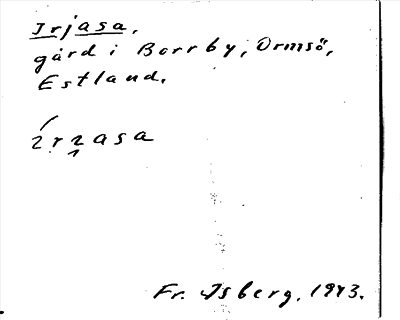 Irjasa,
gård i Borrby, Ormsö,
Estland.
Fr. Isberg, 1943.